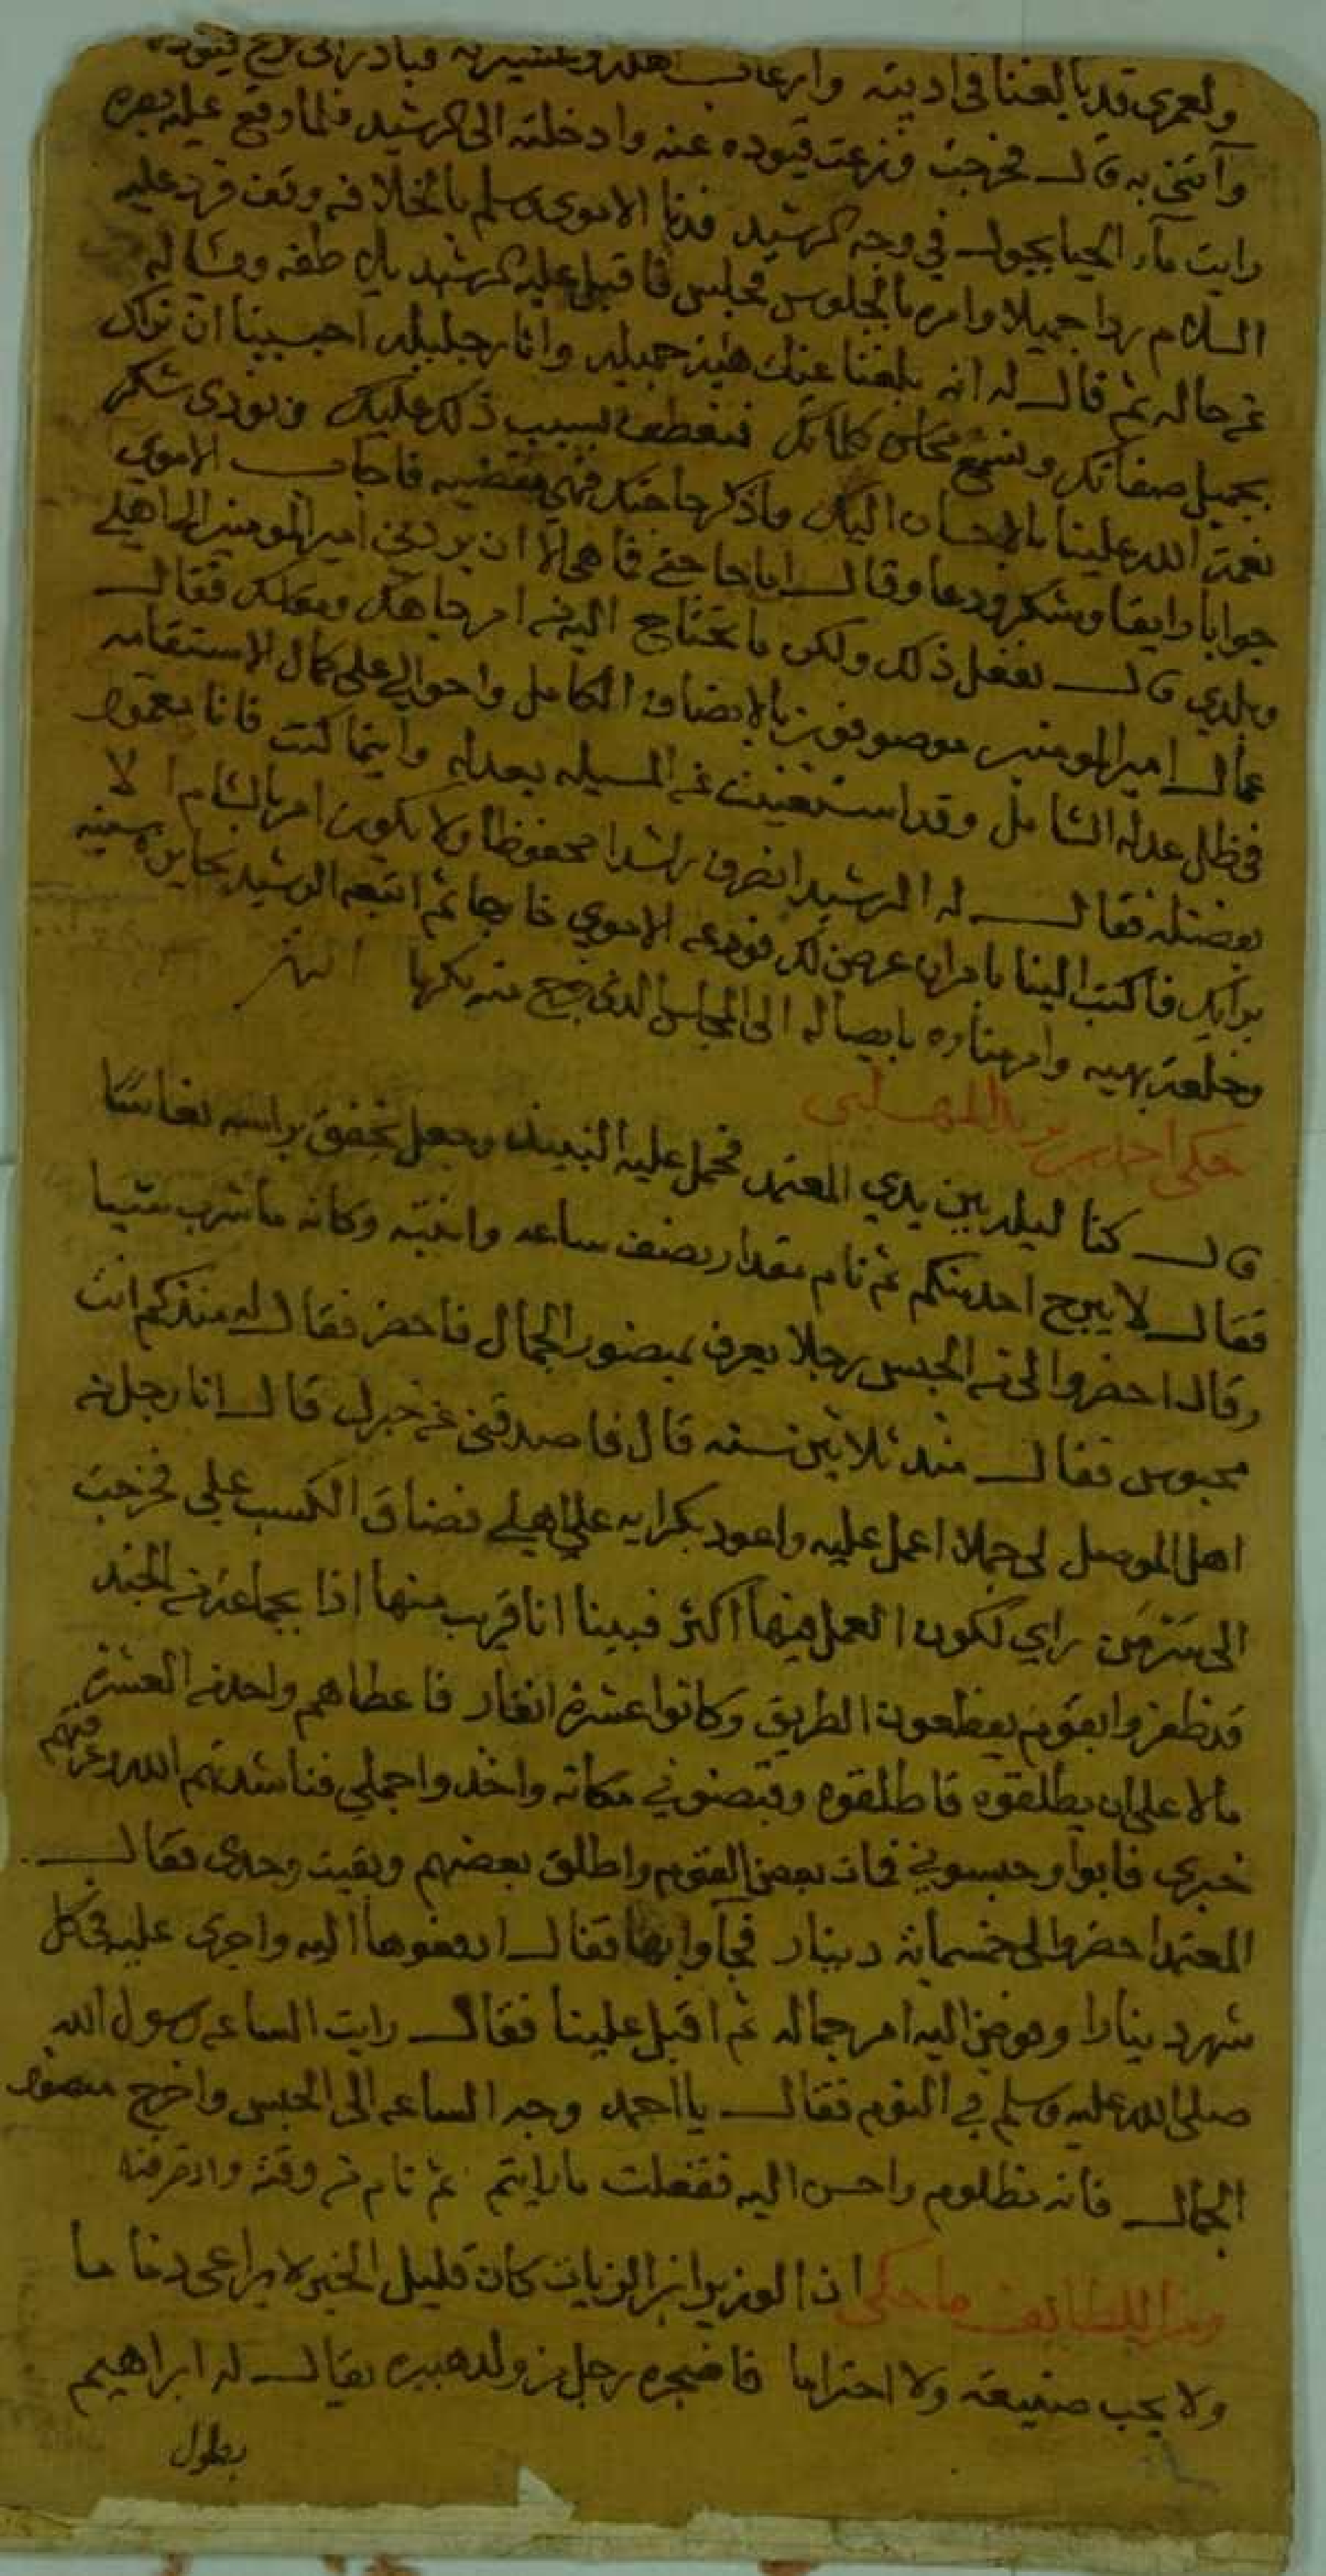 ولعمري قد بالغنا في اذيته وارعاب اهله وعشيرته فبادر الى نزع قيوده
وآتني به قال فخرجت ونزعت قيوده عنه وادخلته الى الرشيد فلما وقع عليه بصره
رايت ماء الحيا يجول في وجه الرشيد فدنا الاموي وسلم بالخلافه ووقف فرد عليه
السلام ردا جميلا وامره بالجلوس فجلس فاقبل عليه الرشيد يلاطفه وساله
عن حاله ثم قال له انه بلغنا عنك هيئه جميله وانا رجليله احببنا ان نراك
بجميل صفاتك ونسمع محاسن كلامك فنعطف بسبب ذلك عليك ونودي شكر
نعمة الله علينا بالاحسان اليك فاذكر حاجتك فهي مقضيه فاجاب الاموي
جوابا رايقا وشكر ودعا وقال اما حاجتي فما هي الا ان يردني امير المومنين الى اهلي
وبلدي قال نفعل ذلك ولكن ما تحتاج اليه من امر جاهك ومعاشك فقال
عمال امير المومنين موصوفون بالانصاف الكامل واحوالي على كمال الاستقامه
في ظل عدله الشامل وقد استغنيت عن المسيله بعدله واينما كنت فانا مغمور
بفضله فقال له الرشيد انصرف راشدا محفوظا ولا يكون امر بالشام الا
برايك فاكتب الينا بامر ان عرض لك فودعه الاموي خارجا ثم اتبعه الرشيد بجايزه سنيه
وخلعة بهيه وامر مناره بايصاله الى المجلس الذي خرج منه مكرما انتهى
حكى احمد بن يزيد المهلبي
قال كنا ليله بين يدي المعتمد فحمل عليه النبيذ وجعل يخفق براسه نعاسا
فقال لا يبرح احد منكم ثم نام مقدار نصف ساعه وانتبه وكانه ما شرب شيا
وقال احضروا لي من الحبس رجلا يعرف بمنصور الجمال فاحضر فقال له منذ كم انت
محبوس فقال منذ ثلاثين سنه قال فاصدقني عن خبرك قال انا رجل من
اهل الموصل لي جملا اعمل عليه واعود بكرايه على اهلي فضاق الكسب علي فخرجت
الى سر من راي لكون العمل فيها اكثر فبينا انا قريب منها اذا بجماعة من الجند
قد ظفروا بقوم يقطعون الطريق وكانوا عشرة انفار فاعطاهم واحد من العشره
مالا على ان يطلقوه فاطلقوه وقبضوني مكانه واخذوا جملي فناشدتهم الله وعرفتهم
خبري فابوا وحبسوني فمات بعض القوم واطلق بعضهم وبقيت وحدي فقال
المعتمد احضروا لي خمسمائة دينار فجآوا بها فقال ادفعوها اليه واجرى عليه في كل
شهر دينارا وفوض اليه امر جماله ثم اقبل علينا فقال رايت الساعه رسول الله
صلى الله عليه وسلم في النوم فقال يا احمد وجه الساعه الى الحبس واخرج منصور
الجمال فانه مظلوم واحسن اليه ففعلت ما رايتم ثم نام من وقته وانصرفنا
ومن اللطايف ما حكى ان الوزير ابن الزيات كان قليل الخير لا يراعي ذماما
ولا يحب صنيعة ولا احتراما فاضجره رجل من ولد هبيره يقال له ابراهيم
بطول